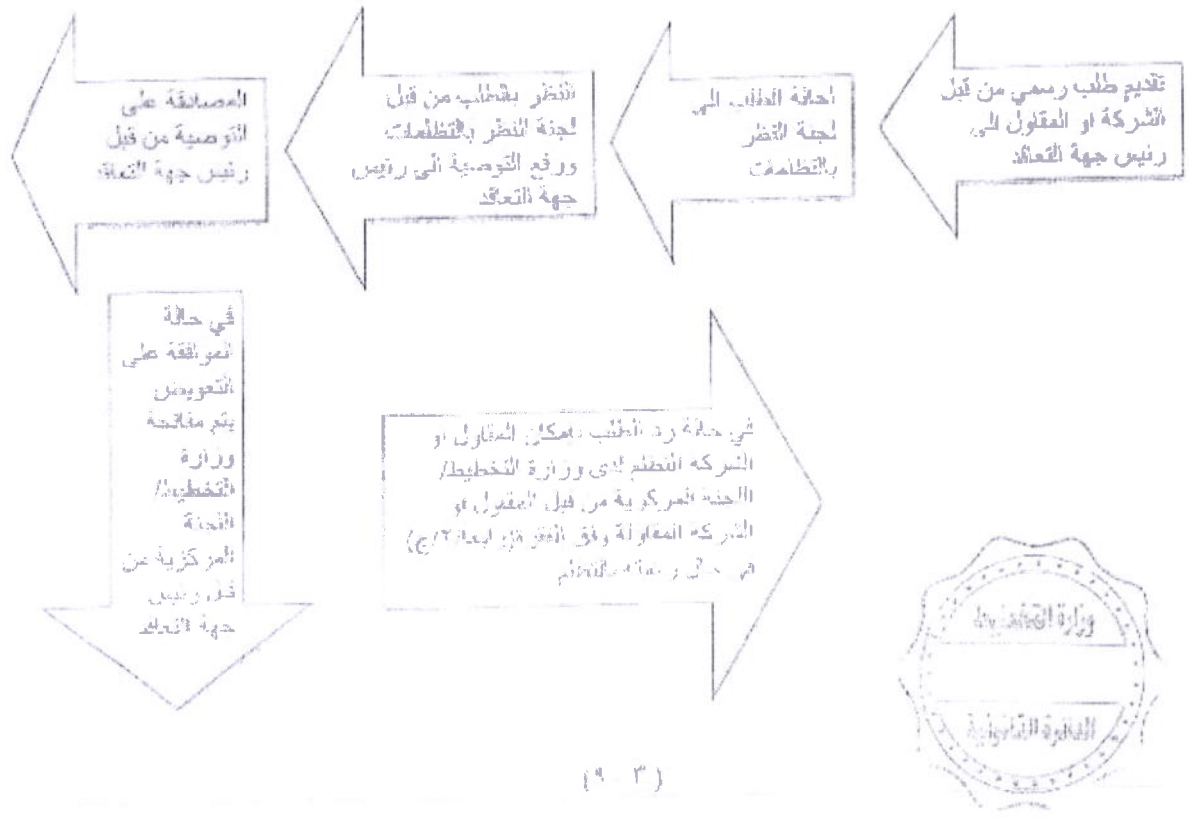 تقديم طلب رسمي من قبل
الشركة او المقاول الى
رئيس جهة التعاقد
احالة الطلب الى
لجنة النظر
بالتظلمات
النظر بالطلب من قبل
لجنة النظر بالتظلمات
ورفع التوصية الى رئيس
جهة التعاقد
المصادقة على
التوصية من قبل
رئيس جهة التعاقد
في حالة
الموافقة على
التعويض
يتم مفاتحة
وزارة
التخطيط/
اللجنة
المركزية من
قبل رئيس
جهة التعاقد
في حالة رد الطلب بامكان المقاول او
الشركة التظلم لدى وزارة التخطيط/
اللجنة المركزية من قبل المقاول او
الشركة المقاولة وفق الفقرة (رابعا/٢/ج)
في حال بالتظلم
وزارة التخطيط
الدائرة القانونية
(٣ - ٩)